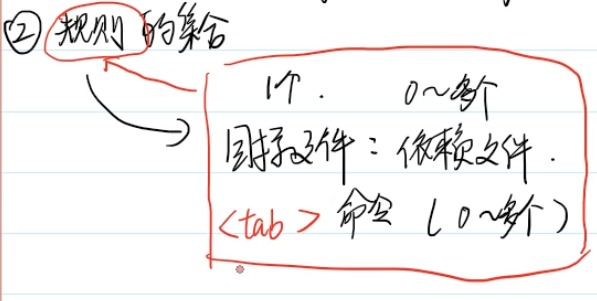 ② 规则的集合
1个. 0~多个
目标文件: 依赖文件.
<tab> 命令 (0~多个)